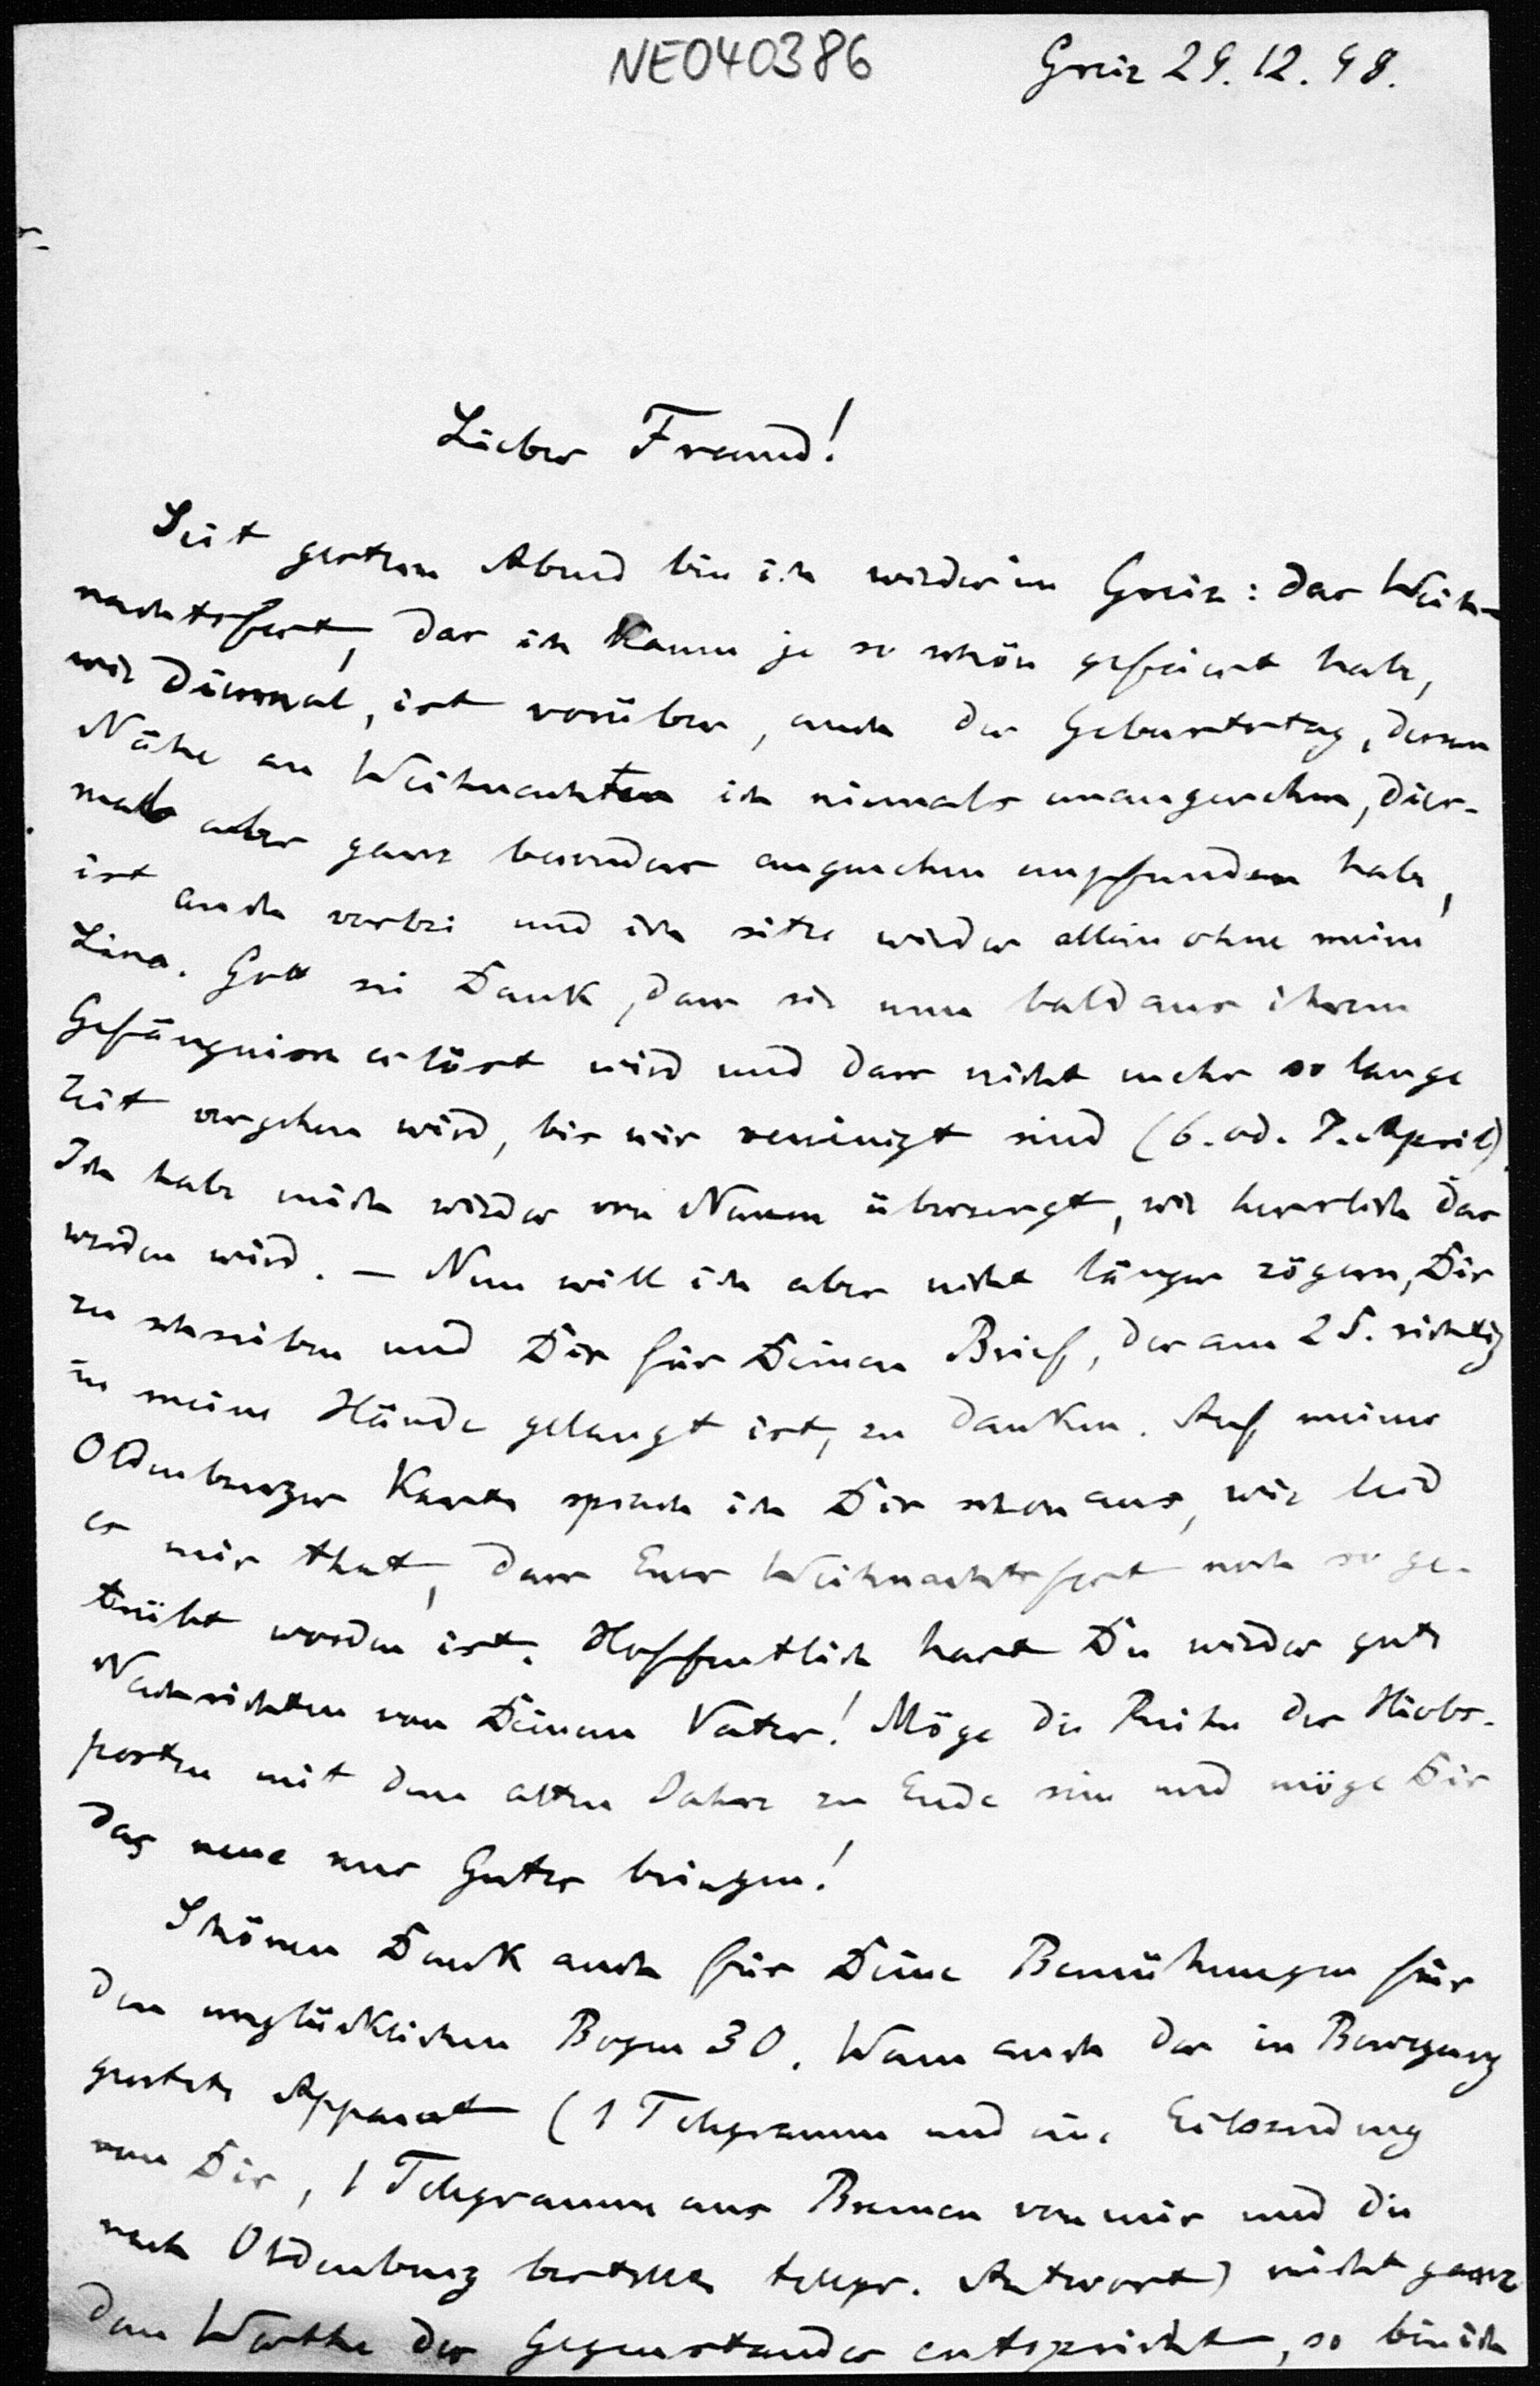 NE040386
Greiz 29. 12. 98.
Lieber Freund!
Seit gestern Abend bin ich wieder in Greiz: das Weih-
nachtsfest, das ich kaum je so schön gefeiert habe,
wie diesmal, ist vorüber, auch der Geburtstag, dessen
Nähe an Weihnachten ich niemals unangenehm, dies-
mal aber ganz besonders angenehm empfunden habe,
ist auch vorbei und ich sitze wieder allein ohne meine
Lina. Gott sei Dank, dass sie nun bald aus ihrem
Gefängnisse erlöst wird und dass nicht mehr so lange
Zeit vergehen wird, bis wir vereinigt sind (6. od. 7. April).
Ich habe mich wieder von Neuem überzeugt, wie herrlich das
werden wird. – Nun will ich aber nicht länger zögern, Dir
zu schreiben und Dir für Deinen Brief, der am 25. richtig
in meine Hände gelangt ist, zu danken. Auf meiner
Oldenburger Karte sprach ich Dir schon aus, wie leid
es mir that, dass Euer Weihnachtsfest noch so ge-
trübt worden ist. Hoffentlich hast Du wieder gute
Nachrichten von Deinem Vater! Möge die Reihe der Hiobs-
posten mit dem alten Jahre zu Ende sein und möge Dir
das neue nur Gutes bringen!
Schönen Dank auch für Deine Bemühungen für
den unglücklichen Bogen 30. Wenn auch der in Bewegung
gesetzte Apparat (1 Telegramm und eine Eilsendung
von Dir, 1 Telegramm aus Bremen von mir und die
nach Oldenburg bestellte telegr. Antwort) nicht ganz
dem Werthe des Gegenstandes entspricht, so bin ich